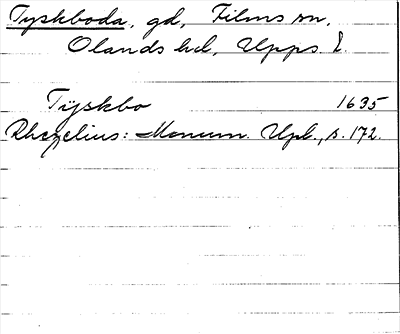 Tyskboda, gd, Films sn,
Olands hd, Upps. l.
Tijskbo 1635
Rhezelius: Monum. Upl., s. 172.